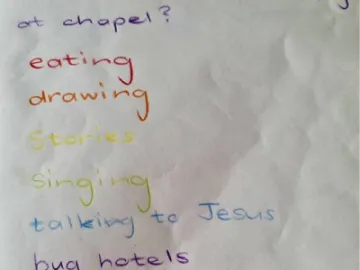 at chapel?
eating
drawing
Stories
Singing
talking to Jesus
bug hotels